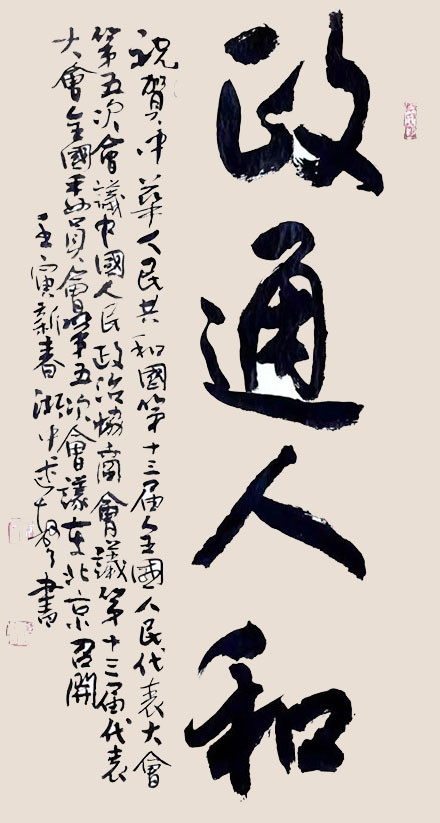 政通人和
祝賀中華人民共和國第十三届全國人民代表大會
第五次會議中國人民政治協商會議第十三届代表
大會全國委員會第五次會議在北京召開
壬寅新春浙中書